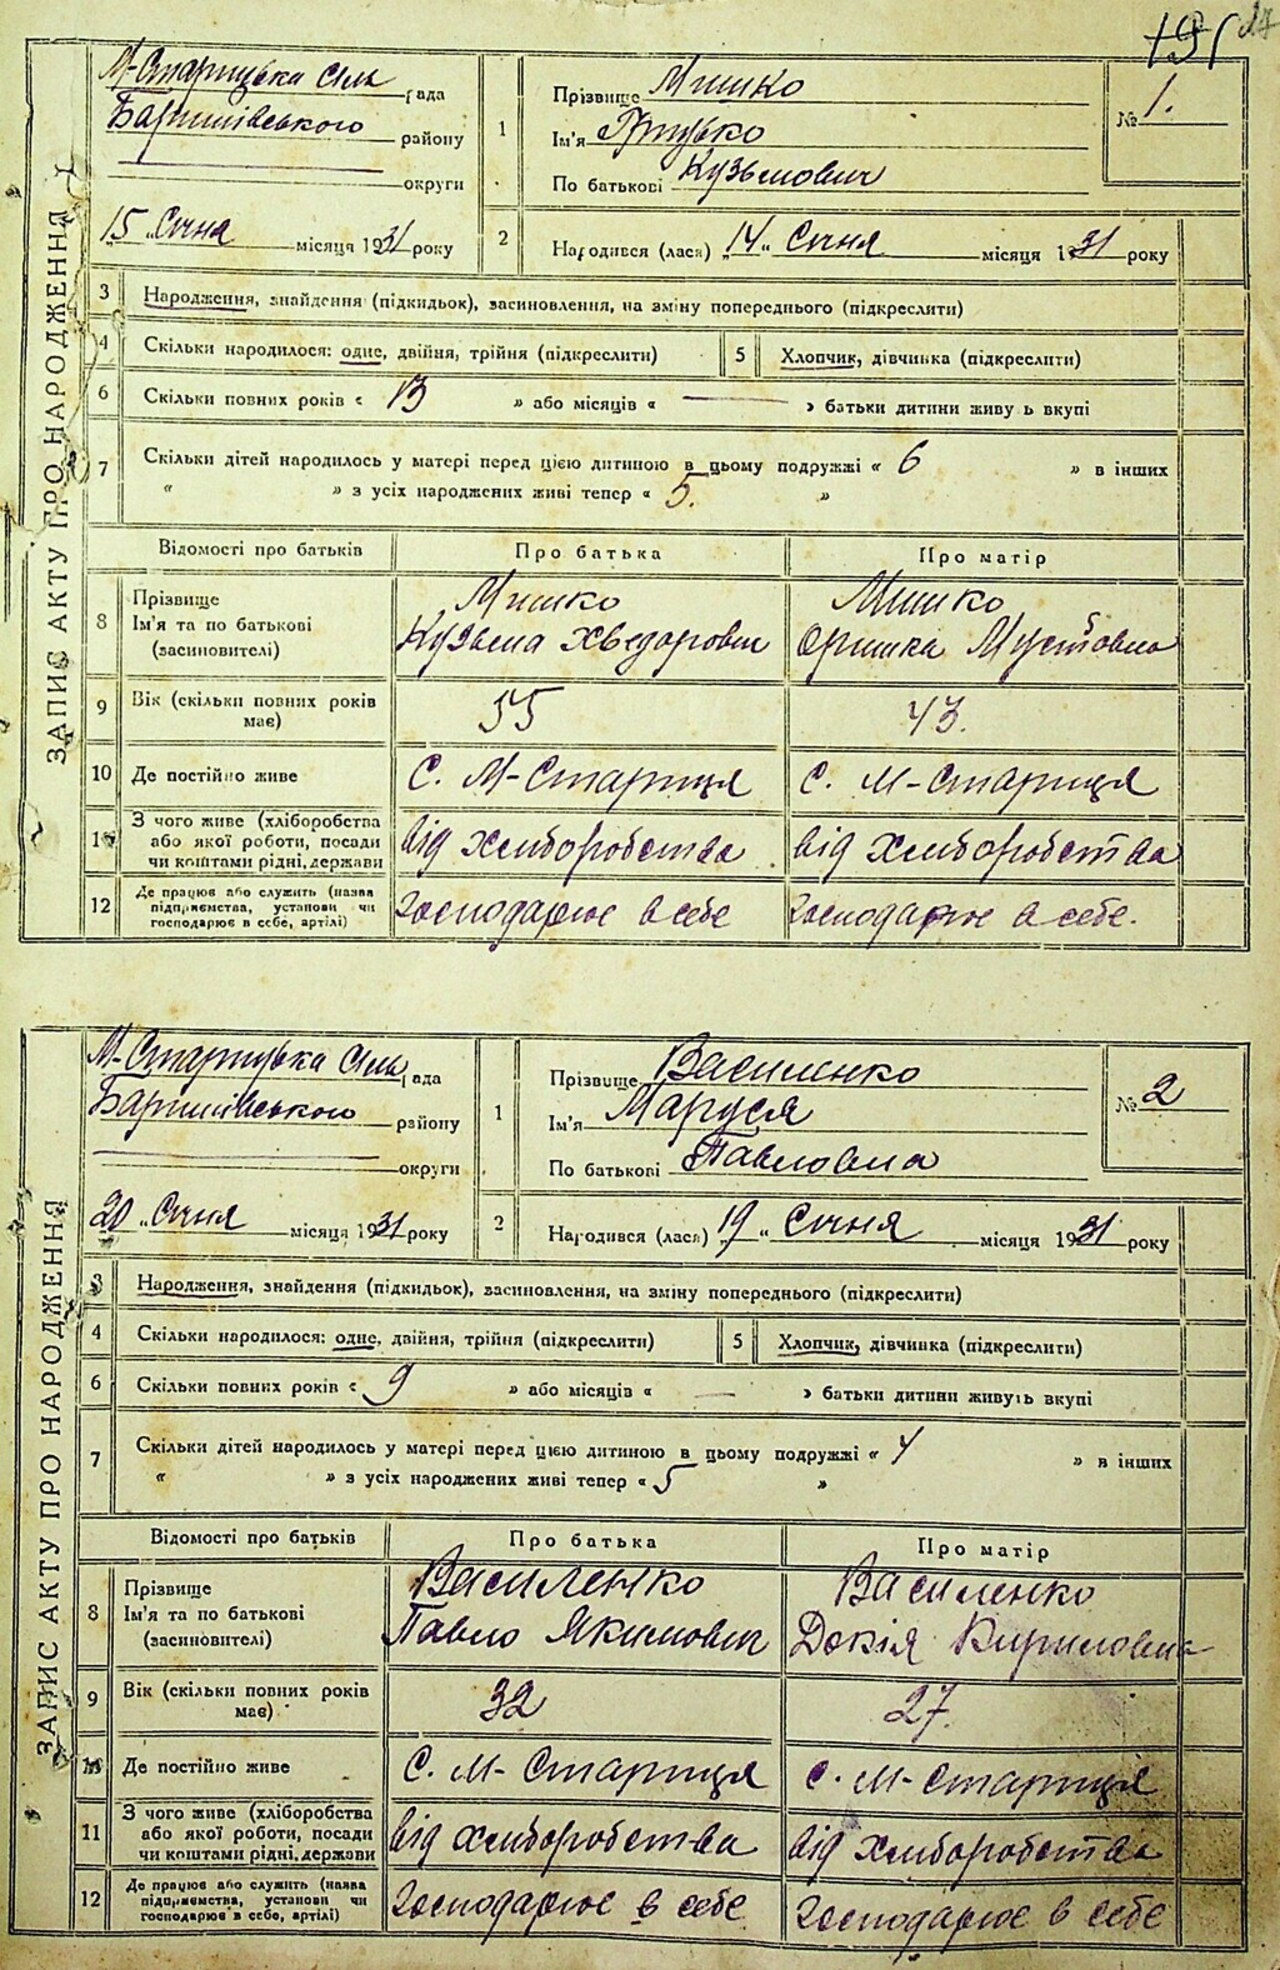 191
ЗАПИС АКТУ ПРО НАРОДЖЕННЯ
М-Старицька сіль рада
Баришівського району
округи
15 „ Січня місяця 1931 року
1
Прізвище Мишко
Ім'я Грицько
По батькові Кузьмович
№ 1.
2
Народився (лася) „14„ Січня місяця 1931 року
3 Народження, знайдення (підкидьок), засиновлення, на зміну попереднього (підкреслити)
4 Скільки народилося: одне, двійня, трійня (підкреслити) 5 Хлопчик, дівчинка (підкреслити)
6 Скільки повних років « 13 » або місяців « — » батьки дитини живу ь вкупі
7 Скільки дітей народилось у матері перед цією дитиною в цьому подружжі « 6 » в інших
« » з усіх народжених живі тепер « 5. »
Відомості про батьків Про батька Про матір
8 Прізвище Ім'я та по батькові (засиновителі)
Мишко Мишко
Кузьма Хведорович Оришка
9 Вік (скільки повних років має) 55 43.
10 Де постійно живе с. М-Стариця с. М-Стариця
11 З чого живе (хліборобства або якої роботи, посади чи коштами рідні, держави від хліборобства від хліборобства
12 Де працює або служить (назва підприємства, установи чи господарює в себе, артілі) господарює в себе господарює в себе.
ЗАПИС АКТУ ПРО НАРОДЖЕННЯ
М-Старицька сіль рада
Баришівського району
округи
20 „ Січня місяця 1931 року
1
Прізвище Василенко
Ім'я Маруся
По батькові Павловна
№ 2
2
Народився (лася) „19„ Січня місяця 1931 року
3 Народження, знайдення (підкидьок), засиновлення, на зміну попереднього (підкреслити)
4 Скільки народилося: одне, двійня, трійня (підкреслити) 5 Хлопчик, дівчинка (підкреслити)
6 Скільки повних років « 9 » або місяців « — » батьки дитини живуть вкупі
7 Скільки дітей народилось у матері перед цією дитиною в цьому подружжі « 4 » в інших
« » з усіх народжених живі тепер « 5 »
Відомості про батьків Про батька Про матір
8 Прізвище Ім'я та по батькові (засиновителі)
Василенко Василенко
Павло Якимович Докія Кириловна
9 Вік (скільки повних років має) 32 27.
10 Де постійно живе с. М-Стариця с. М-Стариця
11 З чого живе (хліборобства або якої роботи, посади чи коштами рідні, держави від хліборобства від хліборобства
12 Де працює або служить (назва підприємства, установи чи господарює в себе, артілі) господарює в себе господарює в себе